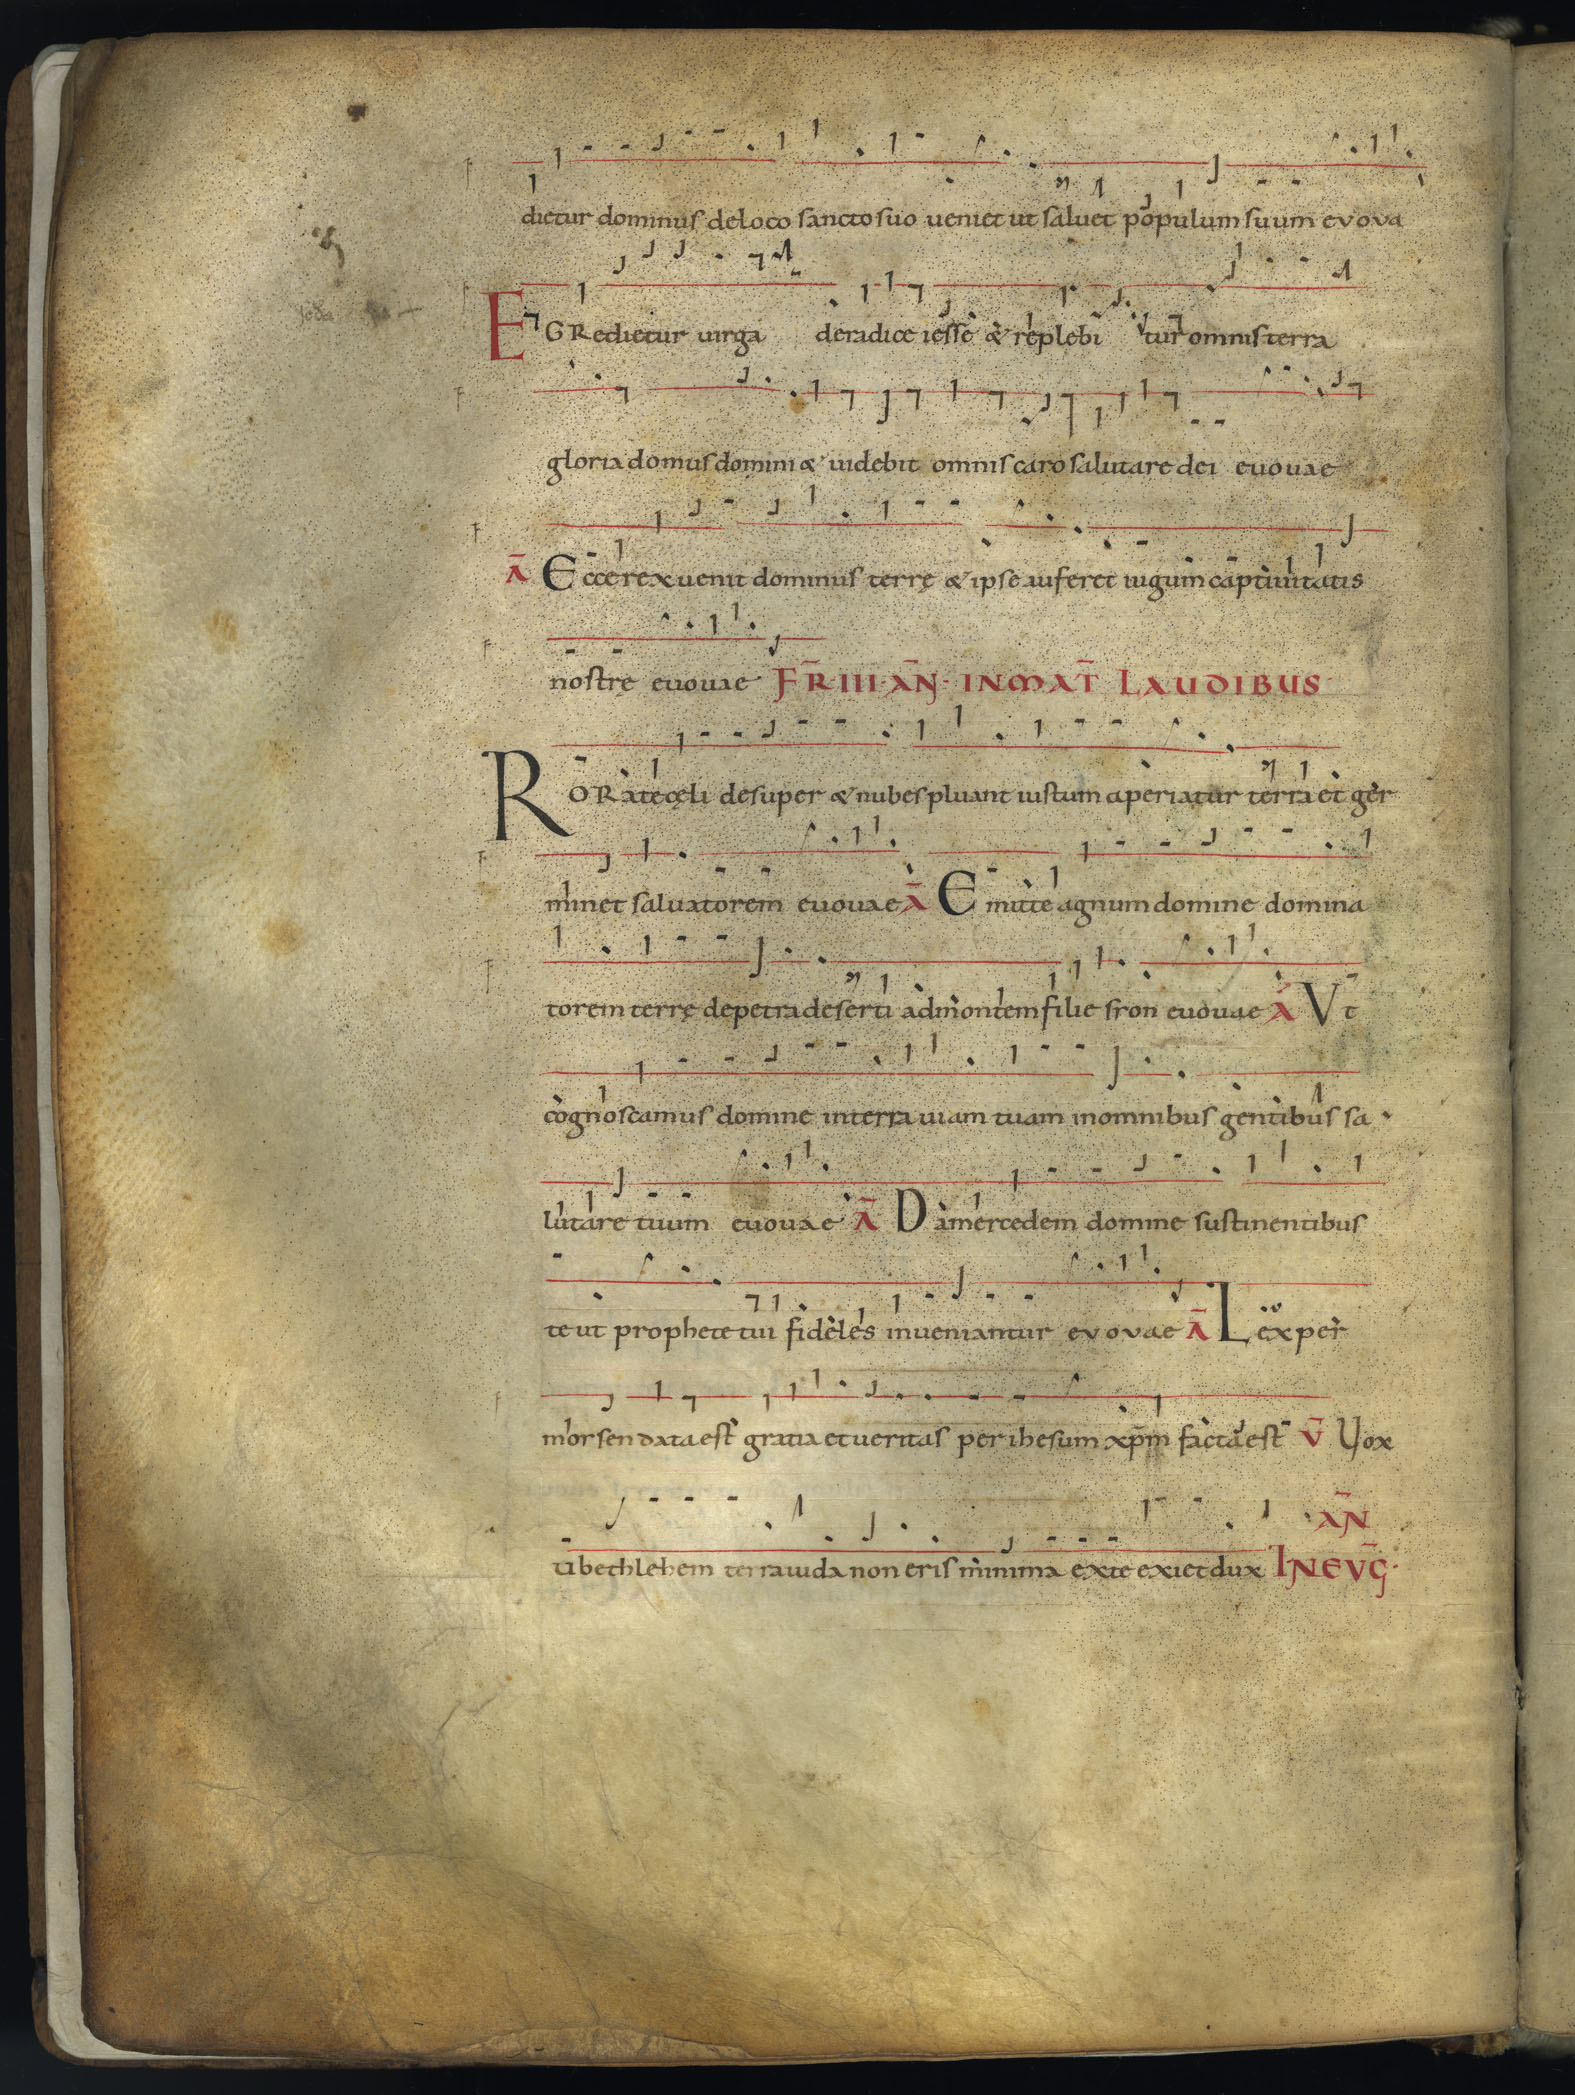 dietur dominus deloco sancto suo ueniet ut saluet populum suum evova
EGRedietur uirga deradice iesse & replebitur omnis terra
gloria domus domini & uidebit omnis caro salutare dei euouae
Ā Ecce rex uenit dominus terrę & ipse auferet iugum captiuitatis
nostre euouae FR̄ III· AN̄· IN MAT̄ LAUDIBUS·
RORate cęli desuper & nubes pluant iustum aperiatur terra et ger
minet saluatorem euouae Ā Emitte agnum domine domina
torem terrę depetra deserti ad montem filie sion euouae Ā Ut
cognoscamus domine interra uiam tuam inomnibus gentibus sa
lutare tuum euouae Ā Da mercedem domine sustinentibus
te ut prophete tui fideles inueniantur evovae Ā Lex per
morsen data est gratia et ueritas per ihesum xp̄m facta est V̄ Vox
AN̄
ti bethlehem terra iuda non eris minima exte exiet dux IN EVḠ·